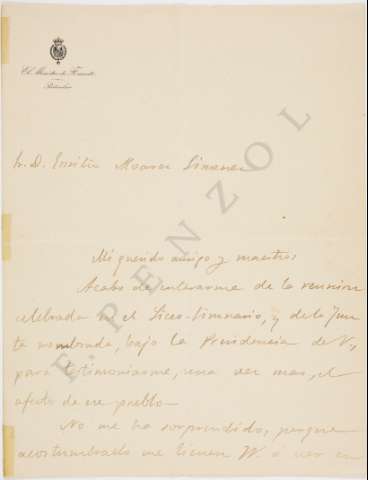 El Ministro de Fomento
Particular
Sr. D. Emilio Alvarez Gimenez
Mi querido amigo y maestro:
Acabo de enterarme de la reunión
celebrada en el Liceo-Gimnasio, y de la Jun
ta nombrada, bajo la Presidencia de V.,
para testimoniarme, una vez mas, el
afecto de ese pueblo
No me ha sorprendido, porque
acostumbrado me tienen VV. á ver en
E. PENZOL